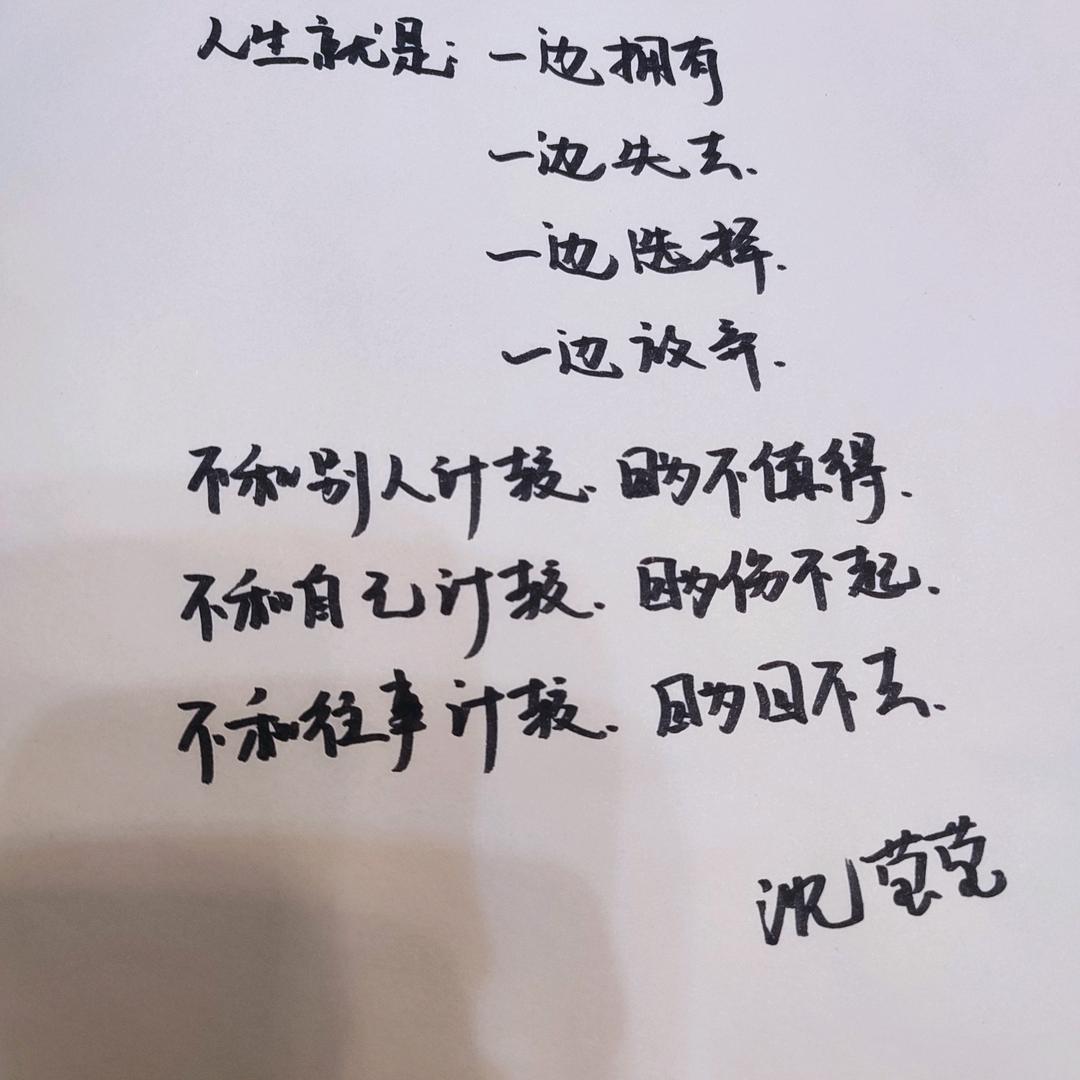 人生就是: 一边拥有
一边失去.
一边选择.
一边放弃.
不和别人计较. 因为不值得.
不和自己计较. 因为伤不起.
不和往事计较. 因为回不去.